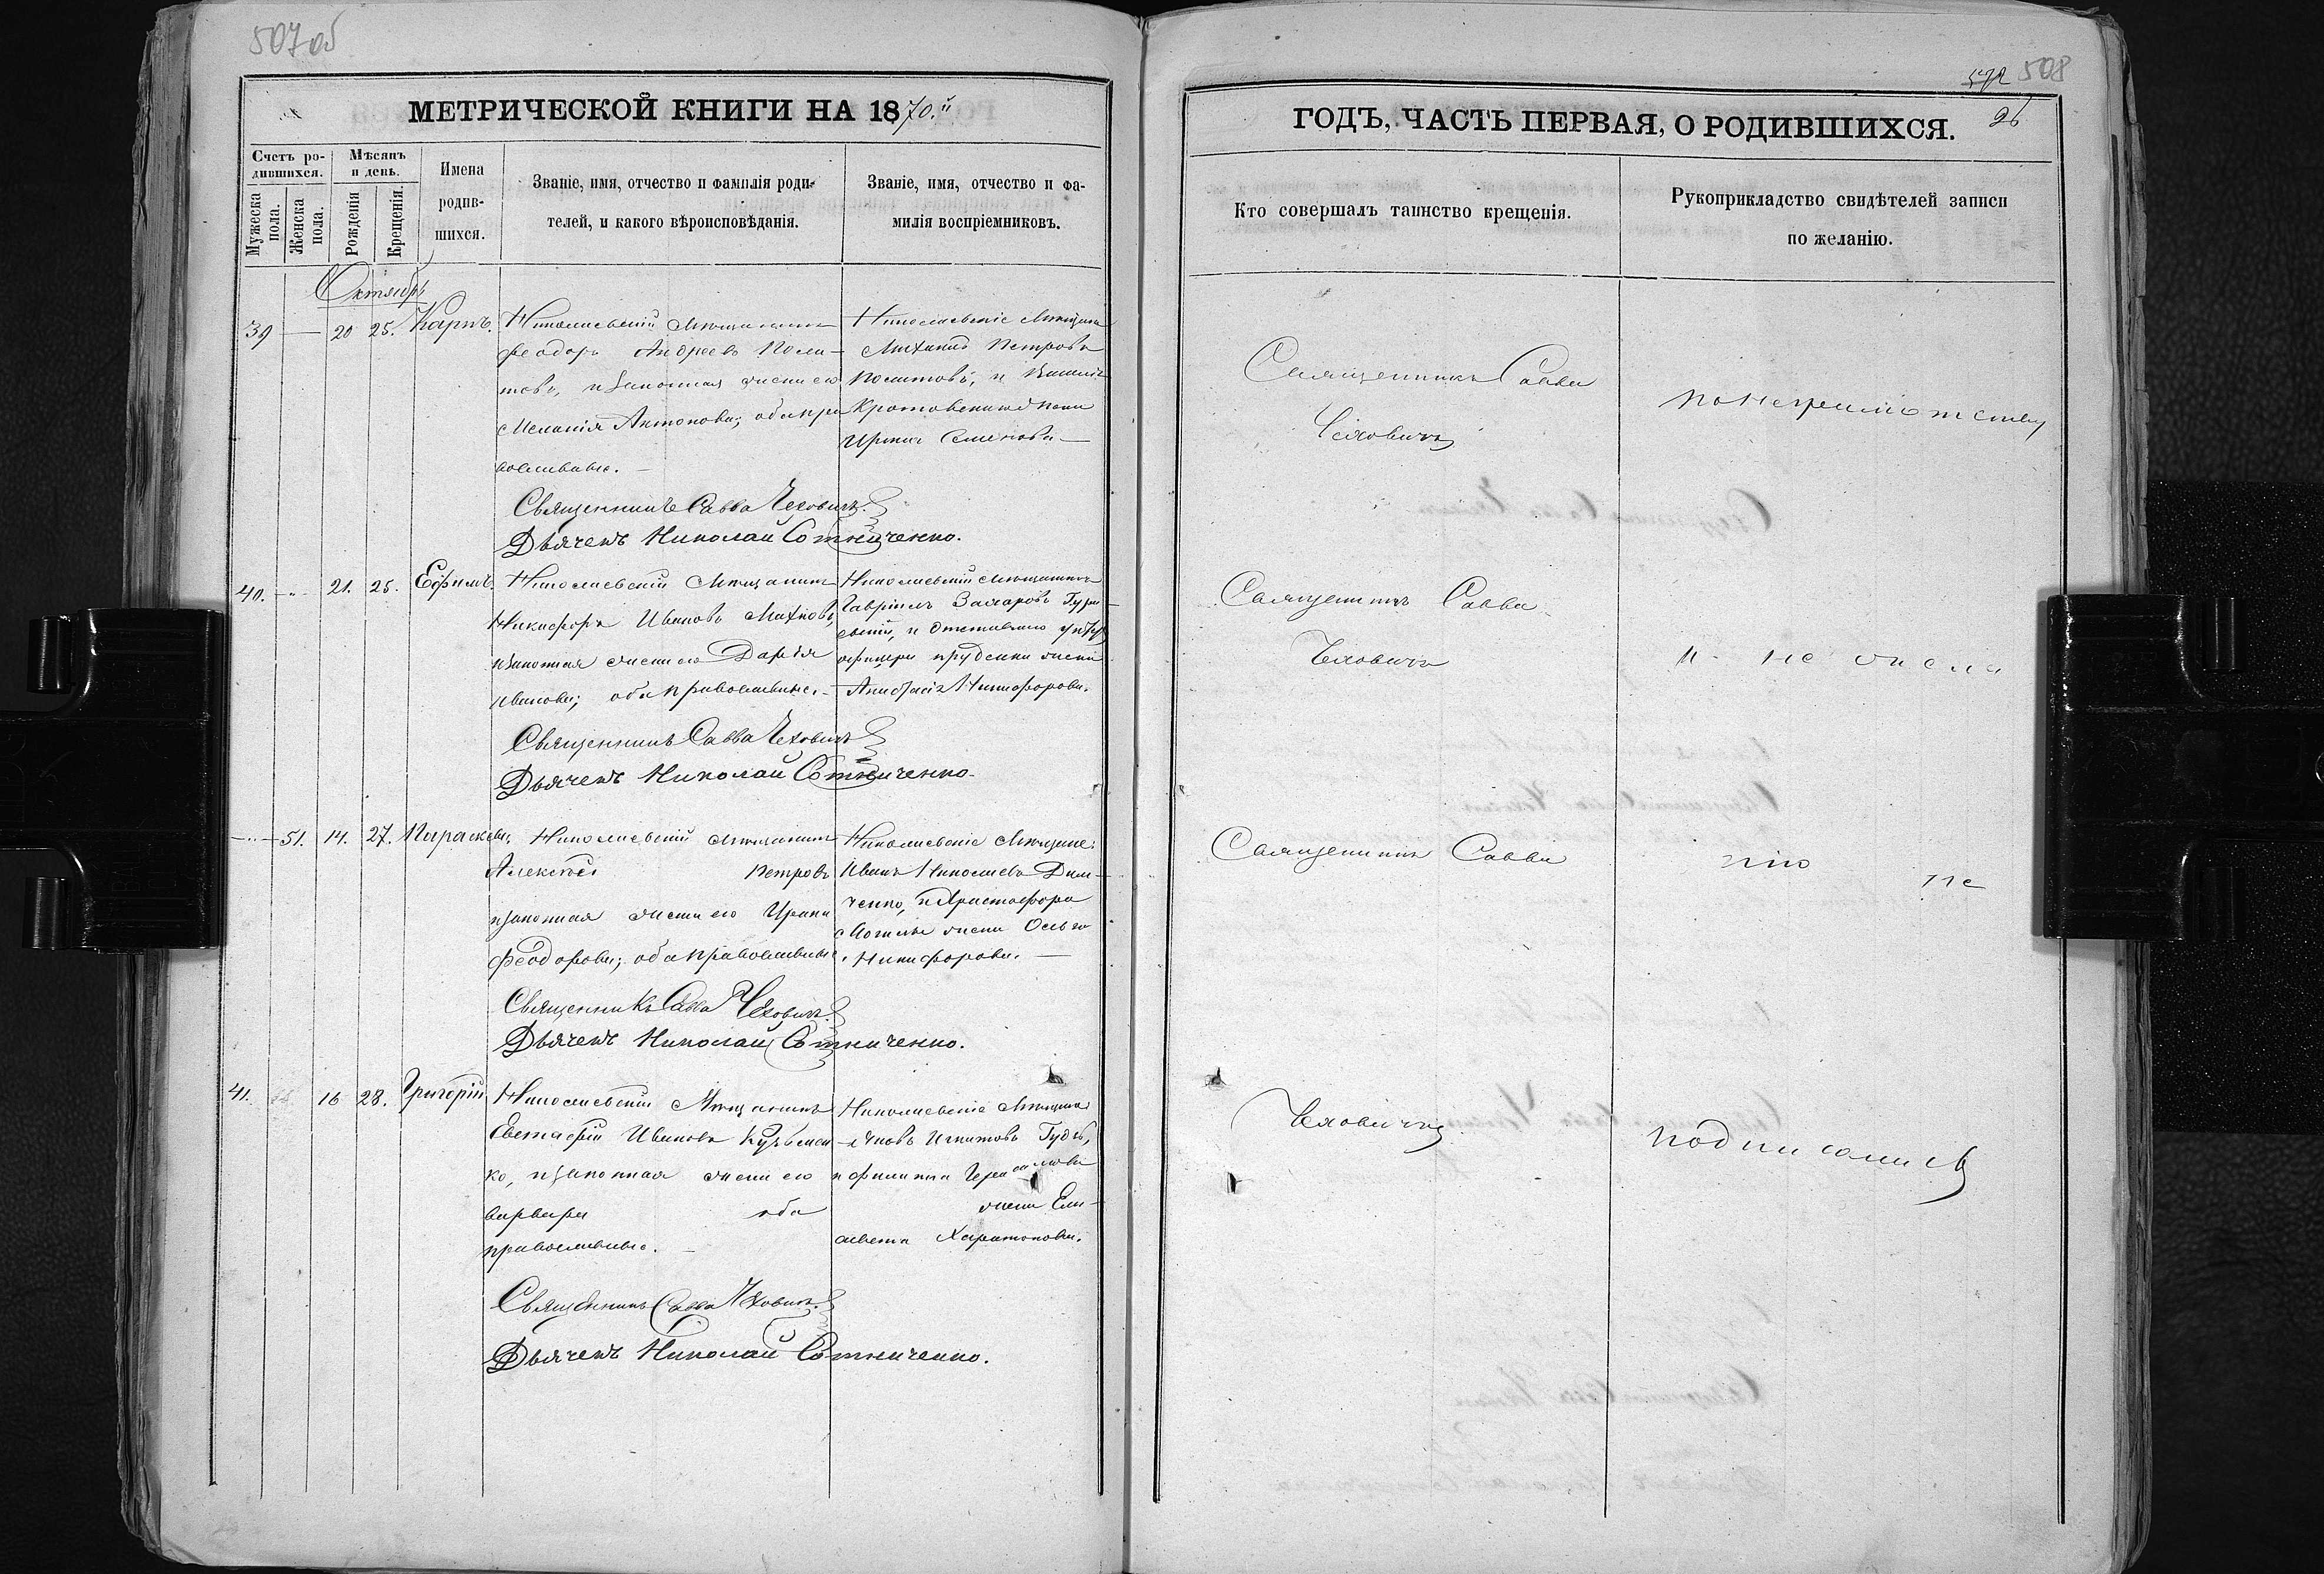 507 об
МЕТРИЧЕСКОЙ КНИГИ НА 1870.й
Счетъ ро-
дившихся.
Мужеска пола.
Женска пола.
Мѣсяцъ
и день.
Рожденія
Крещенія.
Имена
родив-
шихся.
Званіе, имя, отчество и фамилія роди-
телей, и какого вѣроисповѣданія.
Званіе, имя, отчество и фа-
милія воспріемниковъ.
Октябрь
39 — 20 25. Карпъ.
Николаевскій мѣщанинъ
Феодоръ Андреевъ Поли-
товъ, и законная жена его
Меланія Антонова; оба пра
вославные. —
Николаевскіе мѣщане
Михаилъ Петровъ
Политовъ, и
жена
Ирина Семенова —
Священникъ Савва Чеховичъ.
Дьячекъ Николай Сотниченко.
40. — 21. 25. Ефимъ.
Николаевскій мѣщанинъ
Никифоръ Ивановъ Михновъ,
и законная жена его Дарья
Иванова; оба православные. —
Николаевскій мѣщанинъ
Гавріилъ Захаровъ
и отставнаго
офицера жена
Анастасія Никифорова.
Священникъ Савва Чеховичъ
Дьячекъ Николай Сотниченко.
— 51. 14. 27. Параскева,
Николаевскій мѣщанинъ
Алексѣй Петровъ
и законная жена его Ирина
Феодорова; оба православные.
Николаевскіе мѣщане:
Иванъ Николаевъ
ченко, и Христофора
жена Ольга
Никифорова. —
Священникъ Савва Чеховичъ.
Дьячекъ Николай Сотниченко.
41. 16 28. Григорій
Николаевскій Мѣщанинъ
Евстафій Ивановъ Кузьмен
ко, и законная жена его
Варвара оба
православные. —
Николаевскіе мѣщане
Игнатовъ
и Филиппа
жена Ели-
савета Харитонова.
Священникъ Савва Чеховичъ.
Дьячекъ Николай Сотниченко.
572 508
26
ГОДЪ, ЧАСТЬ ПЕРВАЯ, О РОДИВШИХСЯ.
Кто совершалъ таинство крещенія.
Рукоприкладство свидѣтелей записи
по желанію.
Священникъ Савва
Чеховичъ
По неграмотству
Священникъ Савва
Чеховичъ
и не жела
Священникъ Савва
нію не
Чеховичъ
подписались